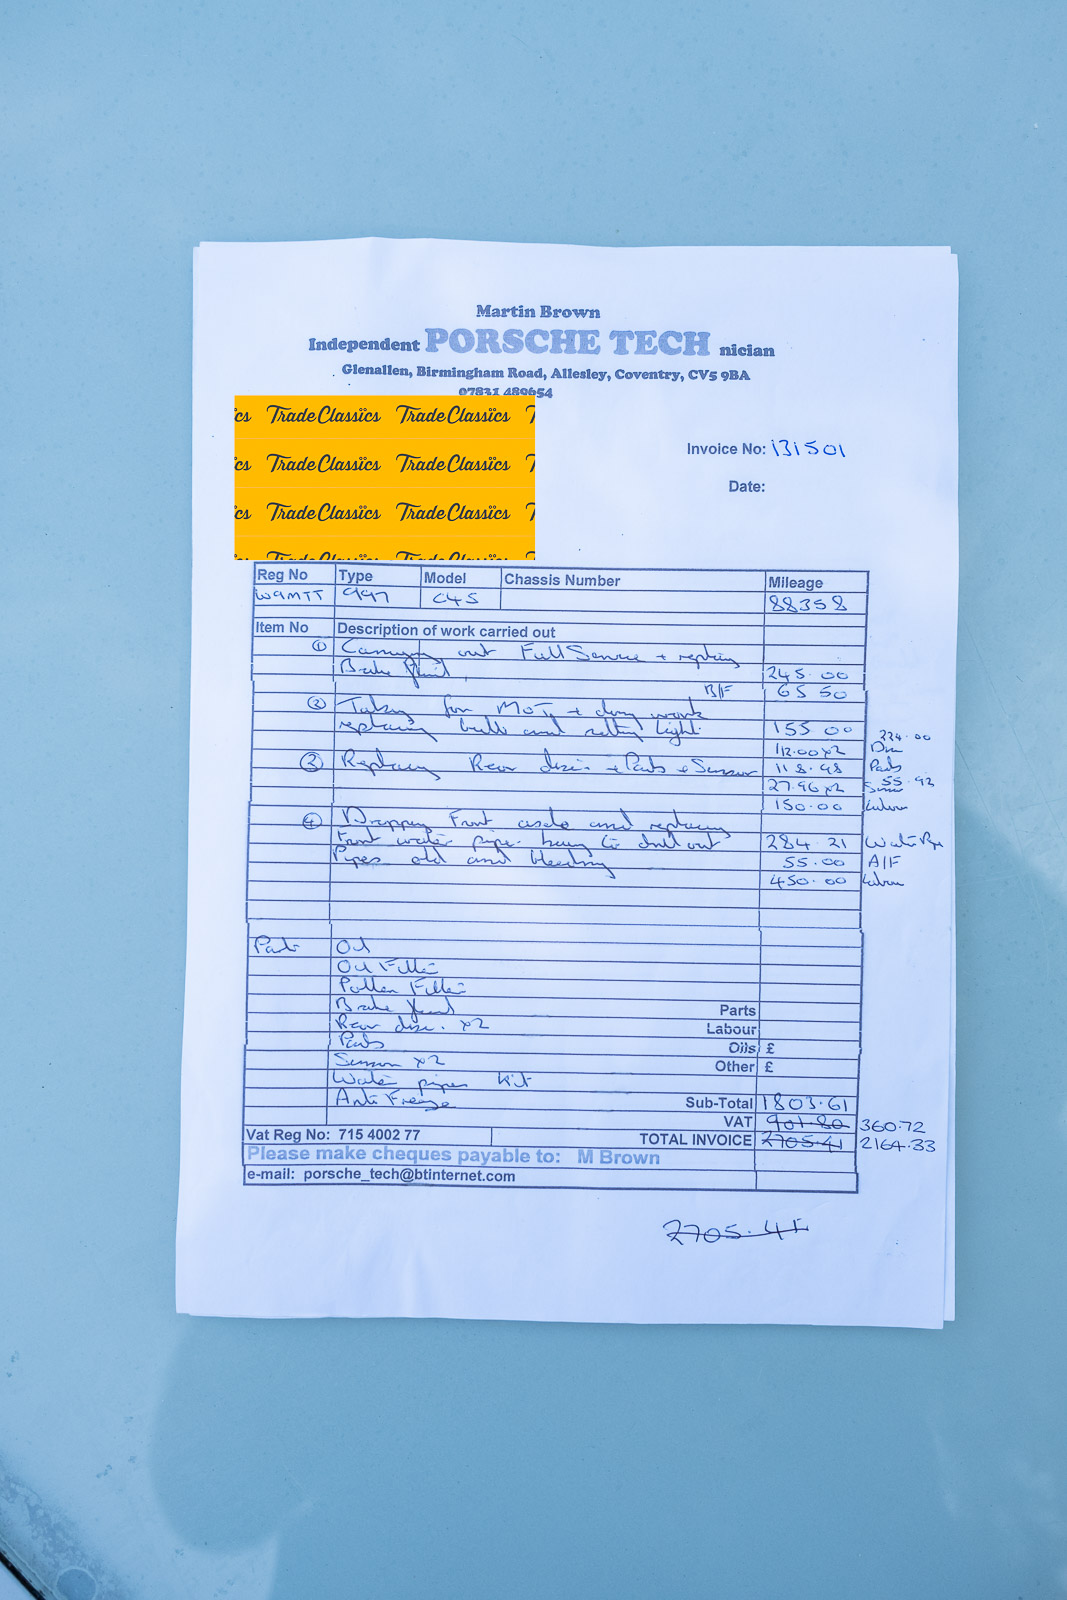 Martin Brown
Independent PORSCHE TECH nician
Glenallen, Birmingham Road, Allesley, Coventry, CV5 9BA
07831 489654
cs TradeClassics TradeClassics T
cs TradeClassics TradeClassics T
cs TradeClassics TradeClassics T
TradeClassics TradeClassics
Invoice No: 131501
Date:
Reg No Type Model Chassis Number Mileage
W9MTT 997 C4S 88358
Item No Description of work carried out
① Carrying out Full Service + replacing
Brake fluid. 245.00
B/F 65 50
② Taking for MoT, + doing work
replacing bulb and setting light. 155 00
224.00
112.00x2
③ Replacing Rear discs + Pads + Sensor 118.48 Pads
27.96x2 55.92
150.00 Labour
④ Dropping Front and replacing
Front water pipes having to drill out 284.21 Water Pipe
Pipes old and bleeding 55.00 A/F
450.00 Labour
Parts Oil
Oil Filter
Pollen Filter
Brake fluid Parts
Rear disc. x2 Labour
Pads Oils £
Sensor x2 Other £
Water pipes kit
Anti Freeze Sub-Total 1803.61
VAT 901.80 360.72
Vat Reg No: 715 4002 77 TOTAL INVOICE 2705.41 2164.33
Please make cheques payable to: M Brown
e-mail: porsche_tech@btinternet.com
2705.41